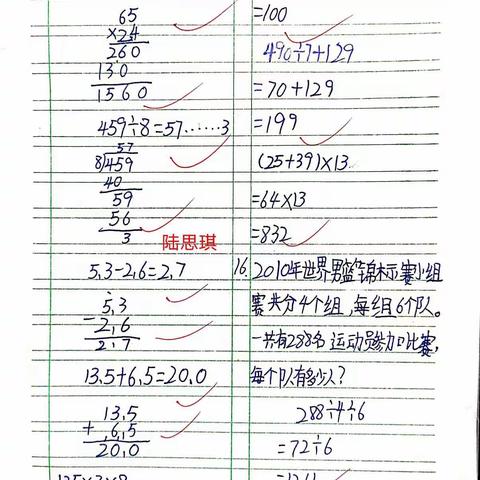 65
×24
260
130
1560
459÷8=57……3
57
8√459
40
59
56
3
陆思琪
5.3-2.6=2.7
5.3
-2.6
2.7
13.5+6.5=20.0
13.5
+6.5
20.0
=100
490÷7+129
=70+129
=199
(25+39)×13
=64×13
=832
16. 2010年世界男篮锦标赛小组
赛共分4个组,每组6个队。
一共有288名运动员参加比赛,
每个队有多少人?
288÷4÷6
=72÷6